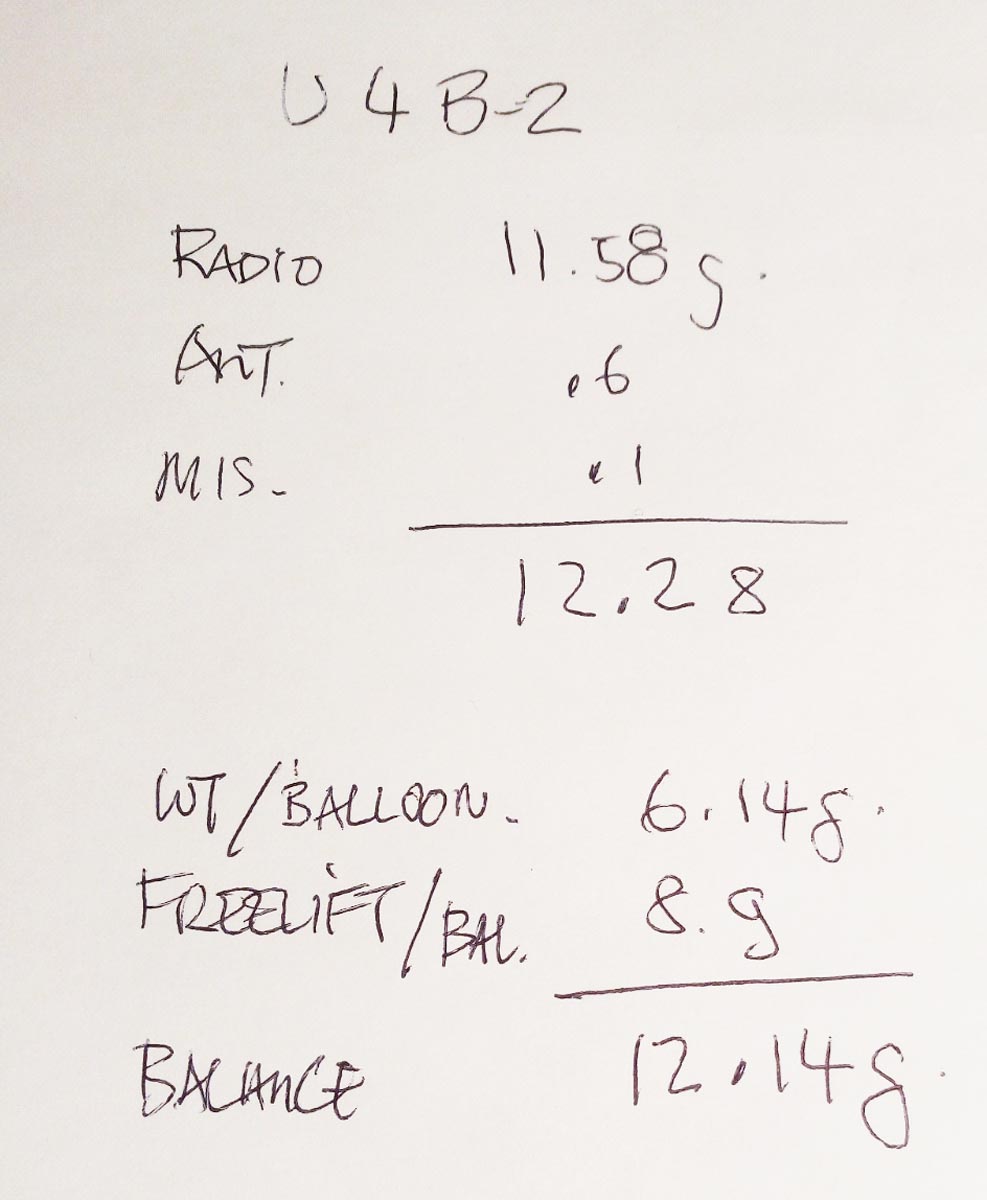 U4B-2
RADIO 11.58g.
ANT. .6
MIS. .1
12.28
WT/BALLOON. 6.14g.
FREELIFT/BAL. 8.g
BALANCE 12.14g.